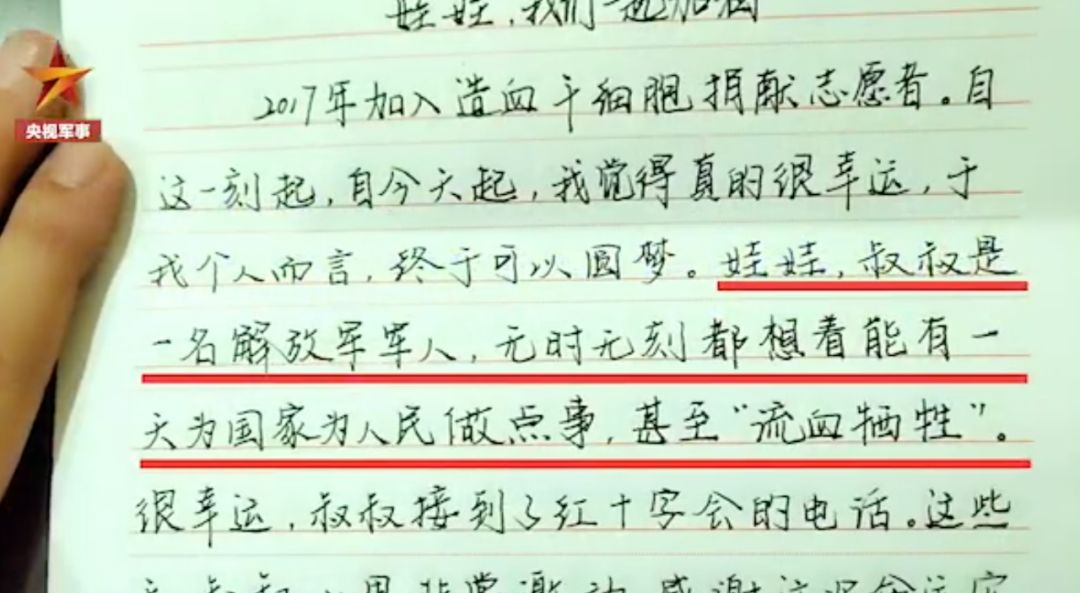 娃娃,我们一起加油
央视军事
2017年加入造血干细胞捐献志愿者。自
这一刻起,自今天起,我觉得真的很幸运,于
我个人而言,终于可以圆梦。娃娃,叔叔是
一名解放军军人,无时无刻都想着能有一
天为国家为人民做点事,甚至“流血牺牲”。
很幸运,叔叔接到了红十字会的电话。这些